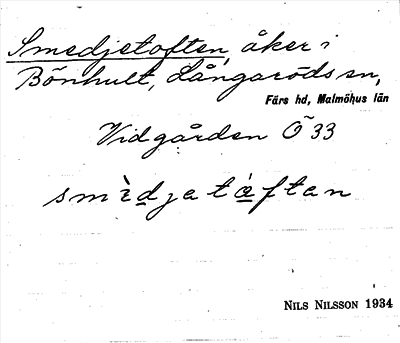 Smedjetoften, åker i
Bönhult, Långaröds sn,
Färs hd, Malmöhus län
Vidgården Ö 33
smìdjatáftan
NILS NILSSON 1934